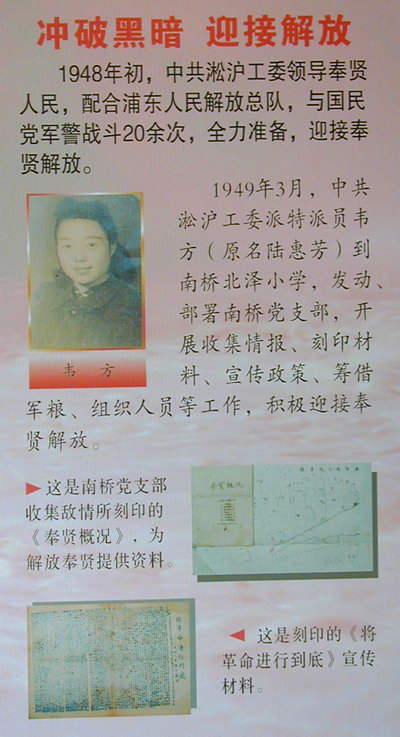 冲破黑暗 迎接解放
1948年初，中共淞沪工委领导奉贤
人民，配合浦东人民解放总队，与国民
党军警战斗20余次，全力准备，迎接奉
贤解放。
1949年3月，中共
淞沪工委派特派员韦
方（原名陆惠芳）到
南桥北泽小学，发动、
部署南桥党支部，开
展收集情报、刻印材
料、宣传政策、筹借
军粮、组织人员等工作，积极迎接奉
贤解放。
韦 方
▶ 这是南桥党支部
收集敌情所刻印的
《奉贤概况》，为
解放奉贤提供资料。
奉贤概况
◀ 这是刻印的《将
革命进行到底》宣传
材料。
将革命进行到底